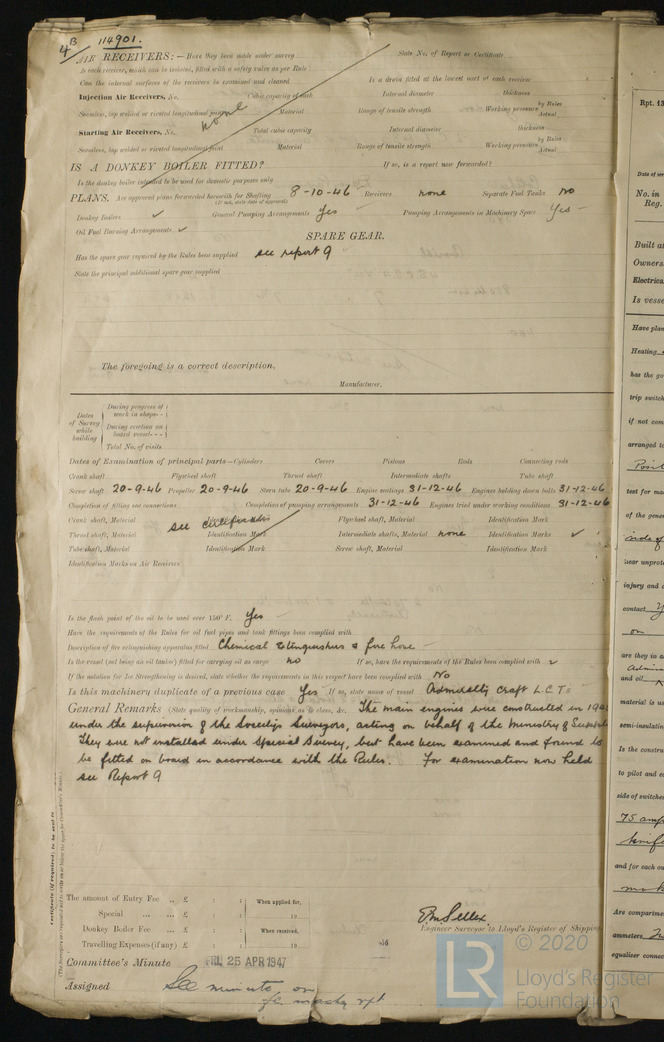 4B 114901.
AIR RECEIVERS:—Have they been made under survey State No. of Report or Certificate
Is each receiver, which can be isolated, fitted with a safety valve as per Rule
Can the internal surfaces of the receivers be examined and cleaned Is a drain fitted at the lowest part of each receiver
Injection Air Receivers, No. Cubic capacity of each Internal diameter thickness
Seamless, lap welded or riveted longitudinal joint Material Range of tensile strength Working pressure by Rules Actual
none
Starting Air Receivers, No. Total cubic capacity Internal diameter thickness
Seamless, lap welded or riveted longitudinal joint Material Range of tensile strength Working pressure by Rules Actual
IS A DONKEY BOILER FITTED? If so, is a report now forwarded?
Is the donkey boiler intended to be used for domestic purposes only
PLANS. Are approved plans forwarded herewith for Shafting 8-10-46 Receivers none Separate Fuel Tanks No
(If not, state date of approval)
Donkey Boilers ✓ General Pumping Arrangements Yes Pumping Arrangements in Machinery Space Yes
Oil Fuel Burning Arrangements ✓
SPARE GEAR.
Has the spare gear required by the Rules been supplied see report 9
State the principal additional spare gear supplied
The foregoing is a correct description,
Manufacturer.
Dates of Survey while building
During progress of work in shops--
During erection on board vessel---
Total No. of visits
Dates of Examination of principal parts—Cylinders Covers Pistons Rods Connecting rods
Crank shaft Flywheel shaft Thrust shaft Intermediate shafts Tube shaft
Screw shaft 20-9-46 Propeller 20-9-46 Stern tube 20-9-46 Engine seatings 31-12-46 Engines holding down bolts 31-12-46
Completion of fitting sea connections Completion of pumping arrangements 31-12-46 Engines tried under working conditions 31-12-46
Crank shaft, Material see certificates Identification Mark Flywheel shaft, Material Identification Mark
Thrust shaft, Material Identification Mark Intermediate shafts, Material none Identification Marks ✓
Tube shaft, Material Identification Mark Screw shaft, Material Identification Mark
Identification Marks on Air Receivers
Is the flash point of the oil to be used over 150° F. Yes
Have the requirements of the Rules for oil fuel pipes and tank fittings been complied with
Description of fire extinguishing apparatus fitted Chemical Extinguishers & fire hose
Is the vessel (not being an oil tanker) fitted for carrying oil as cargo no If so, have the requirements of the Rules been complied with ✓
If the notation for Ice Strengthening is desired, state whether the requirements in this respect have been complied with No
Is this machinery duplicate of a previous case Yes If so, state name of vessel Admiralty Craft L.C.T.
General Remarks (State quality of workmanship, opinions as to class, &c. The main engines were constructed in
under the supervision of the Society's Surveyors, acting on behalf of the Ministry of
They were not installed under Special Survey, but have been examined and found to
be fitted on board in accordance with the Rules. For examination now held
see Report 9
Certificate (if required) to be sent to
The amount of Entry Fee .. £ : : When applied for,
Special ... ... £ : : 19
Donkey Boiler Fee ... £ : : When received,
Travelling Expenses (if any) £ : : 19
Engineer Surveyor to Lloyd's Register of Shipping
Committee's Minute FRI. 25 APR 1947
Assigned See minute on
fe. machy rpt
LR © 2020
Lloyd's Register
Foundation
Rpt. 13
No. in
Reg.
Built at
Owners
Electrical
Is vessel
Have plan
Heating
has the go
trip switch
if not com
arranged to
test for ma
of the gene
near unprot
injury and
contact
on
are they in
and oil
material is us
semi-insulatin
Is the constru
to pilot and e
side of switches
75 amp
knife
and for each ou
Are compartme
ammeters
equaliser connec